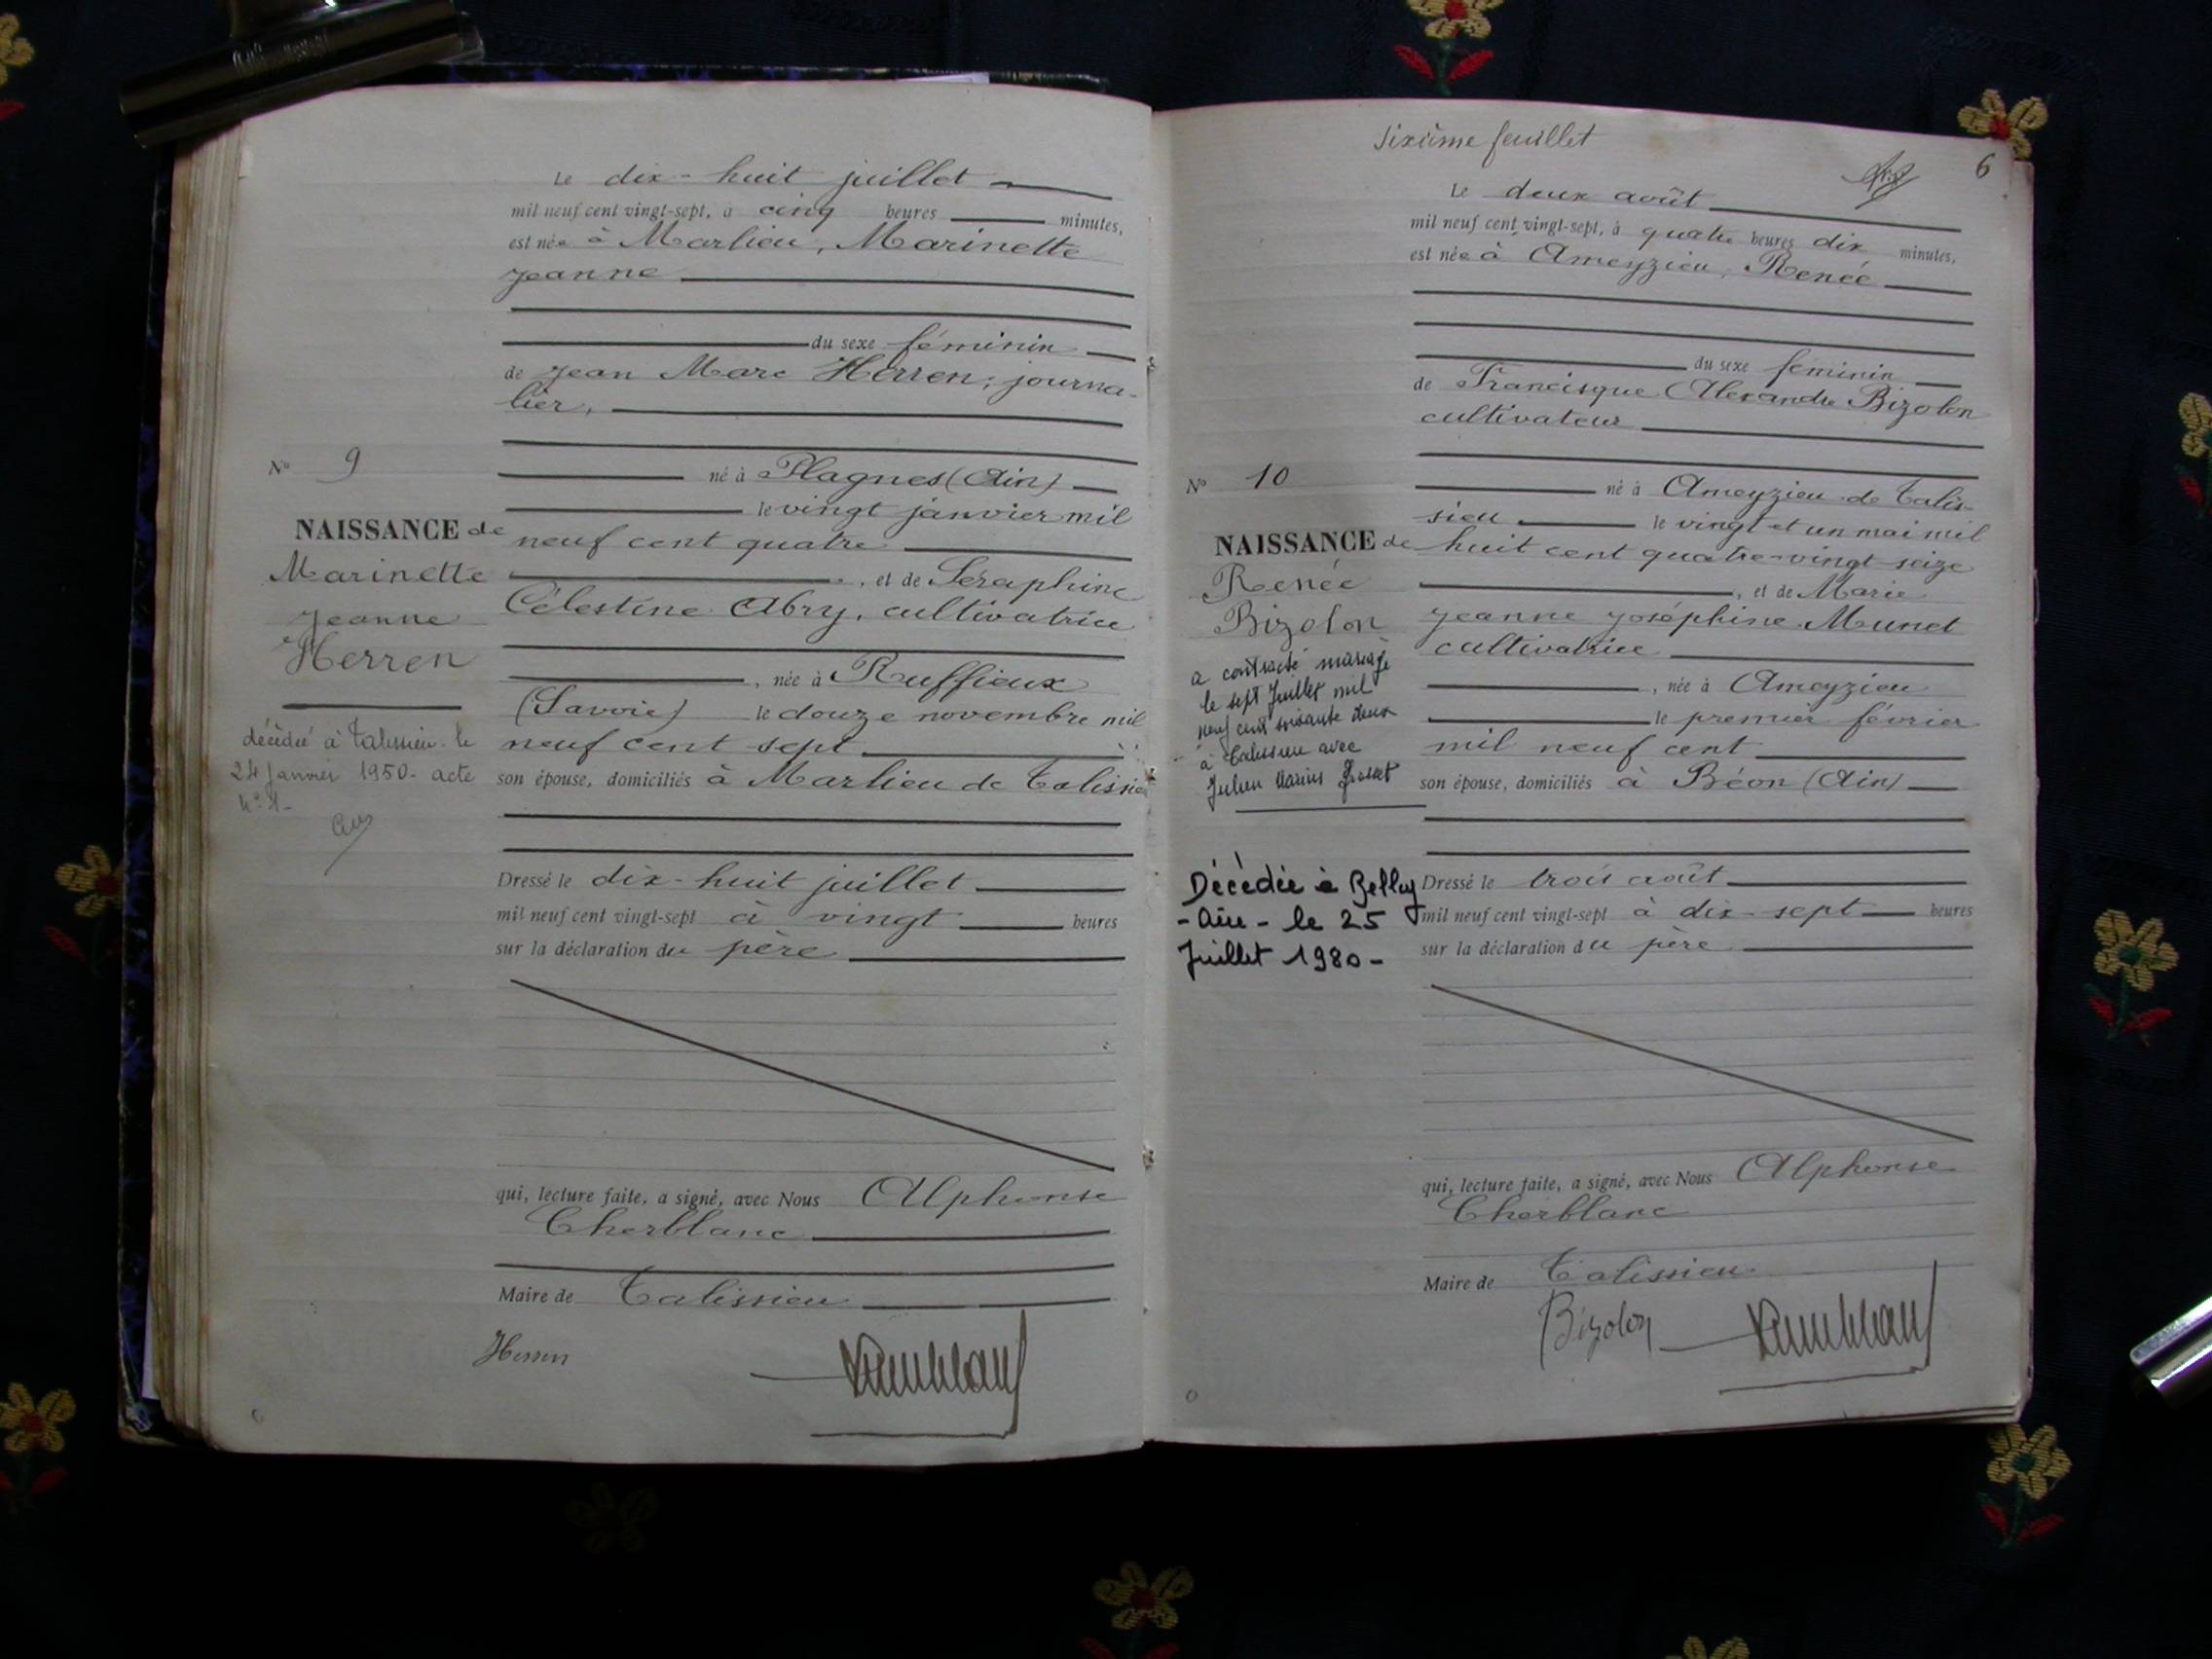 Le dix-huit juillet
mil neuf cent vingt-sept, à cinq heures minutes,
est née à Marlieu, Marinette
Jeanne
du sexe féminin
de Jean Marc Herren, journa-
lier,
né à Plagnes (Ain)
le vingt janvier mil
neuf cent quatre
, et de Séraphine
Célestine Abry, cultivatrice
, née à Ruffieux
(Savoie) le douze novembre mil
neuf cent sept
son épouse, domiciliés à Marlieu de Talissieu
Dressé le dix-huit juillet
mil neuf cent vingt-sept à vingt heures
sur la déclaration du père
qui, lecture faite, a signé, avec Nous Alphonse
Cherblanc
Maire de Talissieu
Herren
N° 9
NAISSANCE de
Marinette
Jeanne
Herren
décédée à Talissieu le
24 Janvier 1950 - acte
N° 1 -
Sixième feuillet
6
Le deux août
mil neuf cent vingt-sept, à quatre heures dix minutes,
est née à Ameyzieu, Renée
du sexe féminin
de Francisque Alexandre Bizolon
cultivateur
né à Ameyzieu de Talis-
sieu le vingt et un mai mil
huit cent quatre-vingt-seize
, et de Marie
Jeanne Joséphine Munet
cultivatrice
, née à Ameyzieu
le premier février
mil neuf cent
son épouse, domiciliés à Béon (Ain)
Dressé le trois août
mil neuf cent vingt-sept à dix-sept heures
sur la déclaration du père
qui, lecture faite, a signé, avec Nous Alphonse
Cherblanc
Maire de Talissieu
Bizolon
N° 10
NAISSANCE de
Renée
Bizolon
a contracté mariage
le sept Juillet mil
neuf cent soixante deux
à Talissieu avec
Julien Marius
Décédée à Belley
- Ain - le 25
Juillet 1980 -